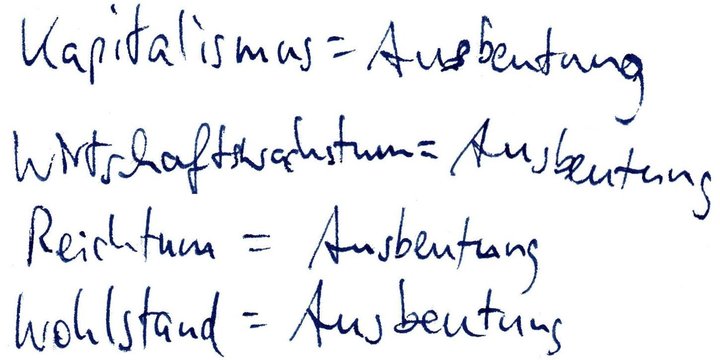 Kapitalismus = Ausbeutung
Wirtschaftswachstum = Ausbeutung
Reichtum = Ausbeutung
Wohlstand = Ausbeutung